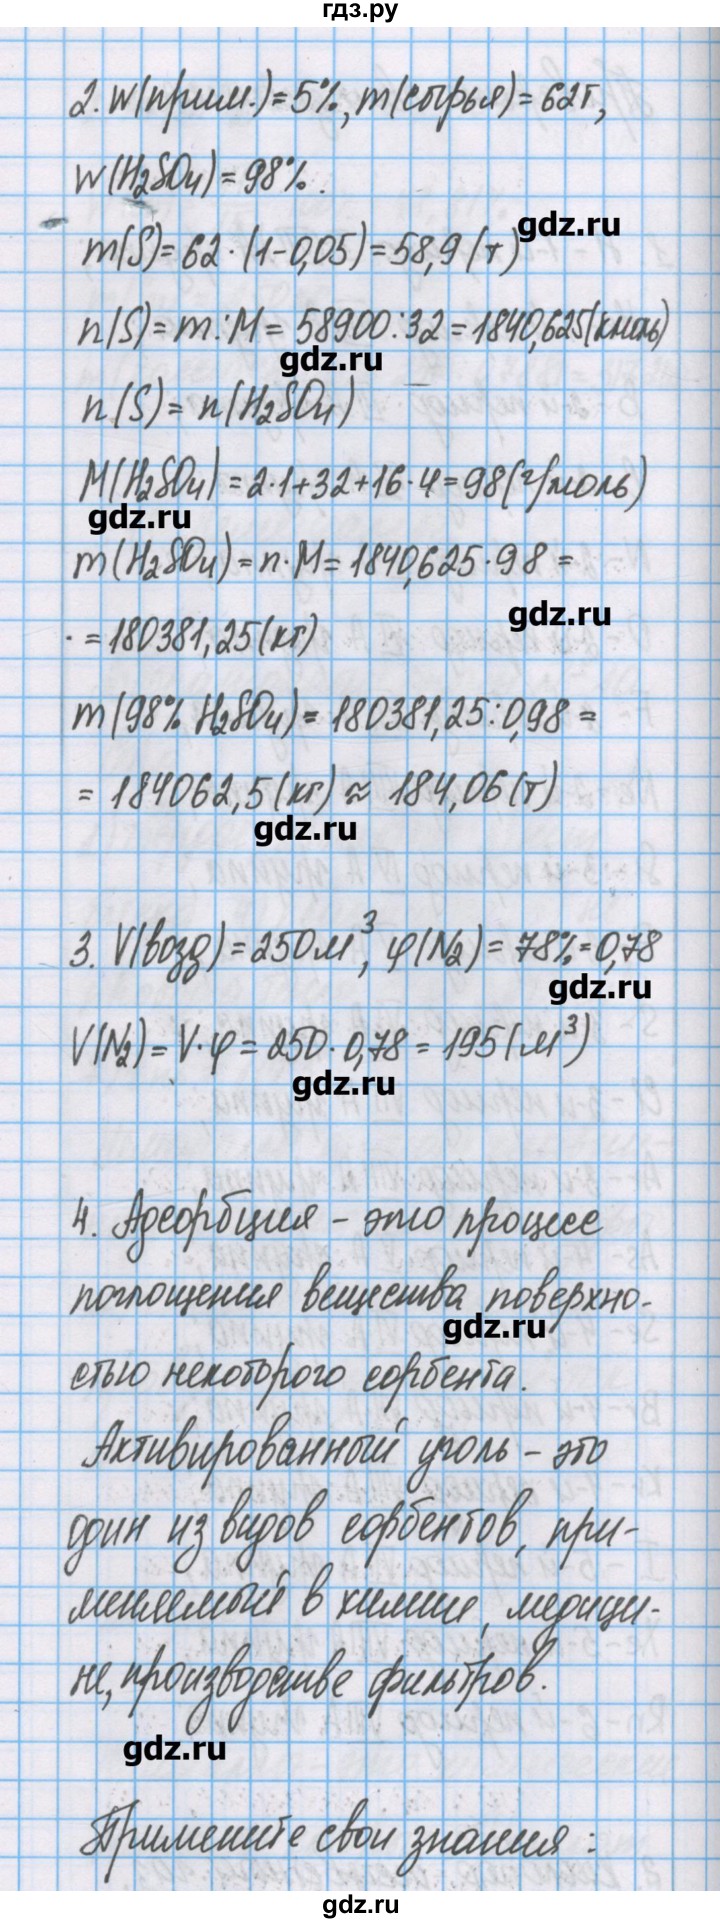 гдз.ру
2. W(прим.)=5%, m(сырья)=62т,
W(H₂SO₄)=98%.
gdz.ru
m(S)=62·(1-0,05)=58,9(т)
n(S)=m:M=58900:32=1840,625(кмоль)
gdz.ru
n(S)=n(H₂SO₄)
M(H₂SO₄)=2·1+32+16·4=98(г/моль)
gdz.ru
m(H₂SO₄)=n·M=1840,625·98=
gdz.ru
=180381,25(кг)
m(98% H₂SO₄)=180381,25:0,98=
=184062,5(кг)≈184,06(т)
gdz.ru
3. V(возд)=250м³, φ(N₂)=78%=0,78
gdz.ru
V(N₂)=V·φ=250·0,78=195(м³)
gdz.ru
4. Адсорбция - это процесс
поглощения вещества поверхно-
gdz.ru
стью некоторого сорбента.
Активированный уголь - это
один из видов сорбентов, при-
меняемый в химии, медици-
не, производстве фильтров.
gdz.ru
Примените свои знания:
gdz.ru